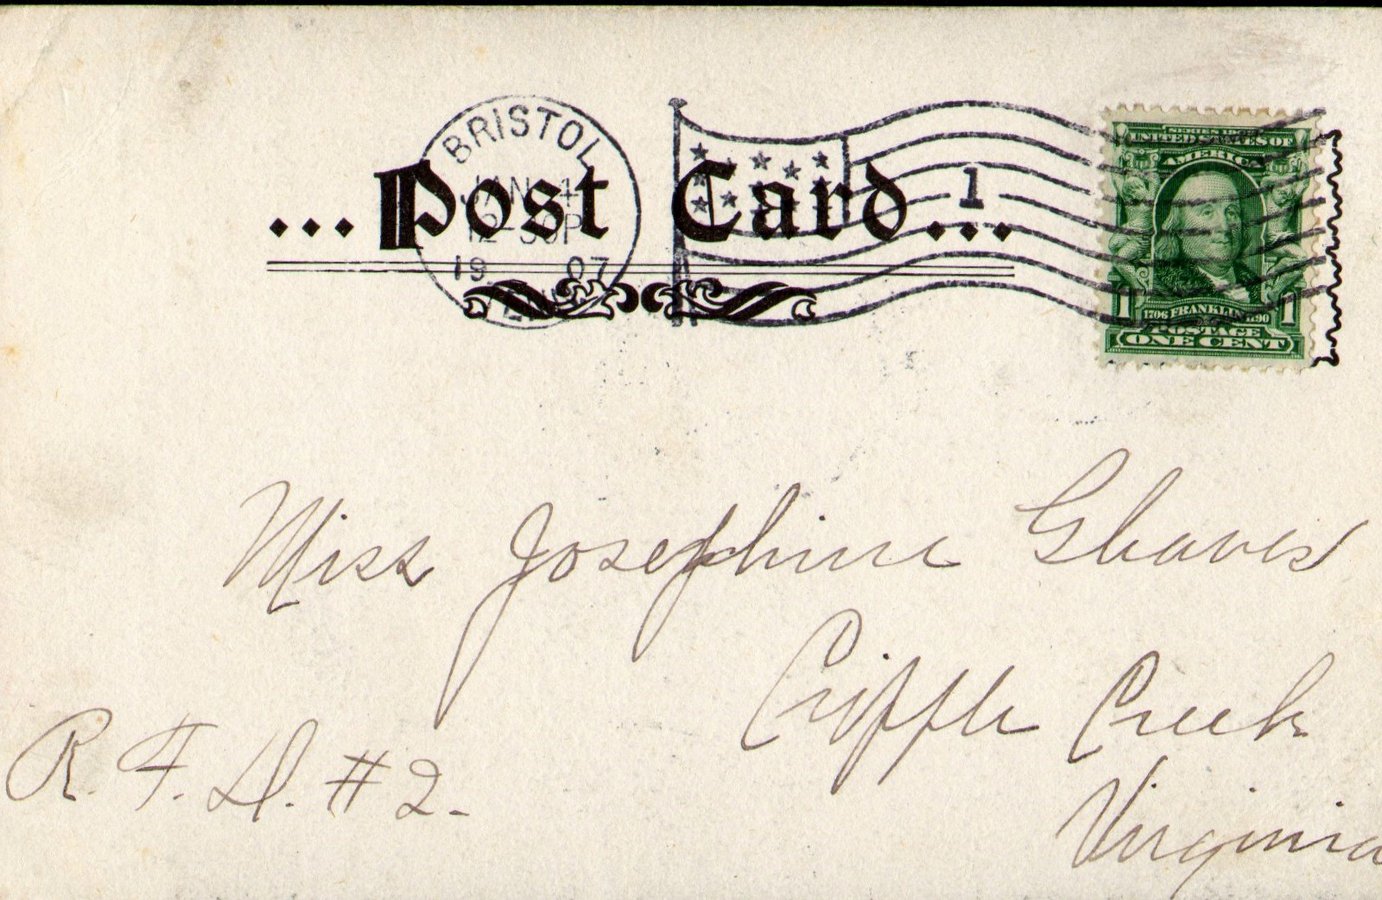 BRISTOL
JAN 4
12-30P
19 07
...Post Card...
1
SERIES 1902
UNITED STATES OF
AMERICA
1 1706 FRANKLIN 1790 1
POSTAGE
ONE CENT
Miss Josephine Gleaves
Cripple Creek
R. F. D. #2.
Virginia